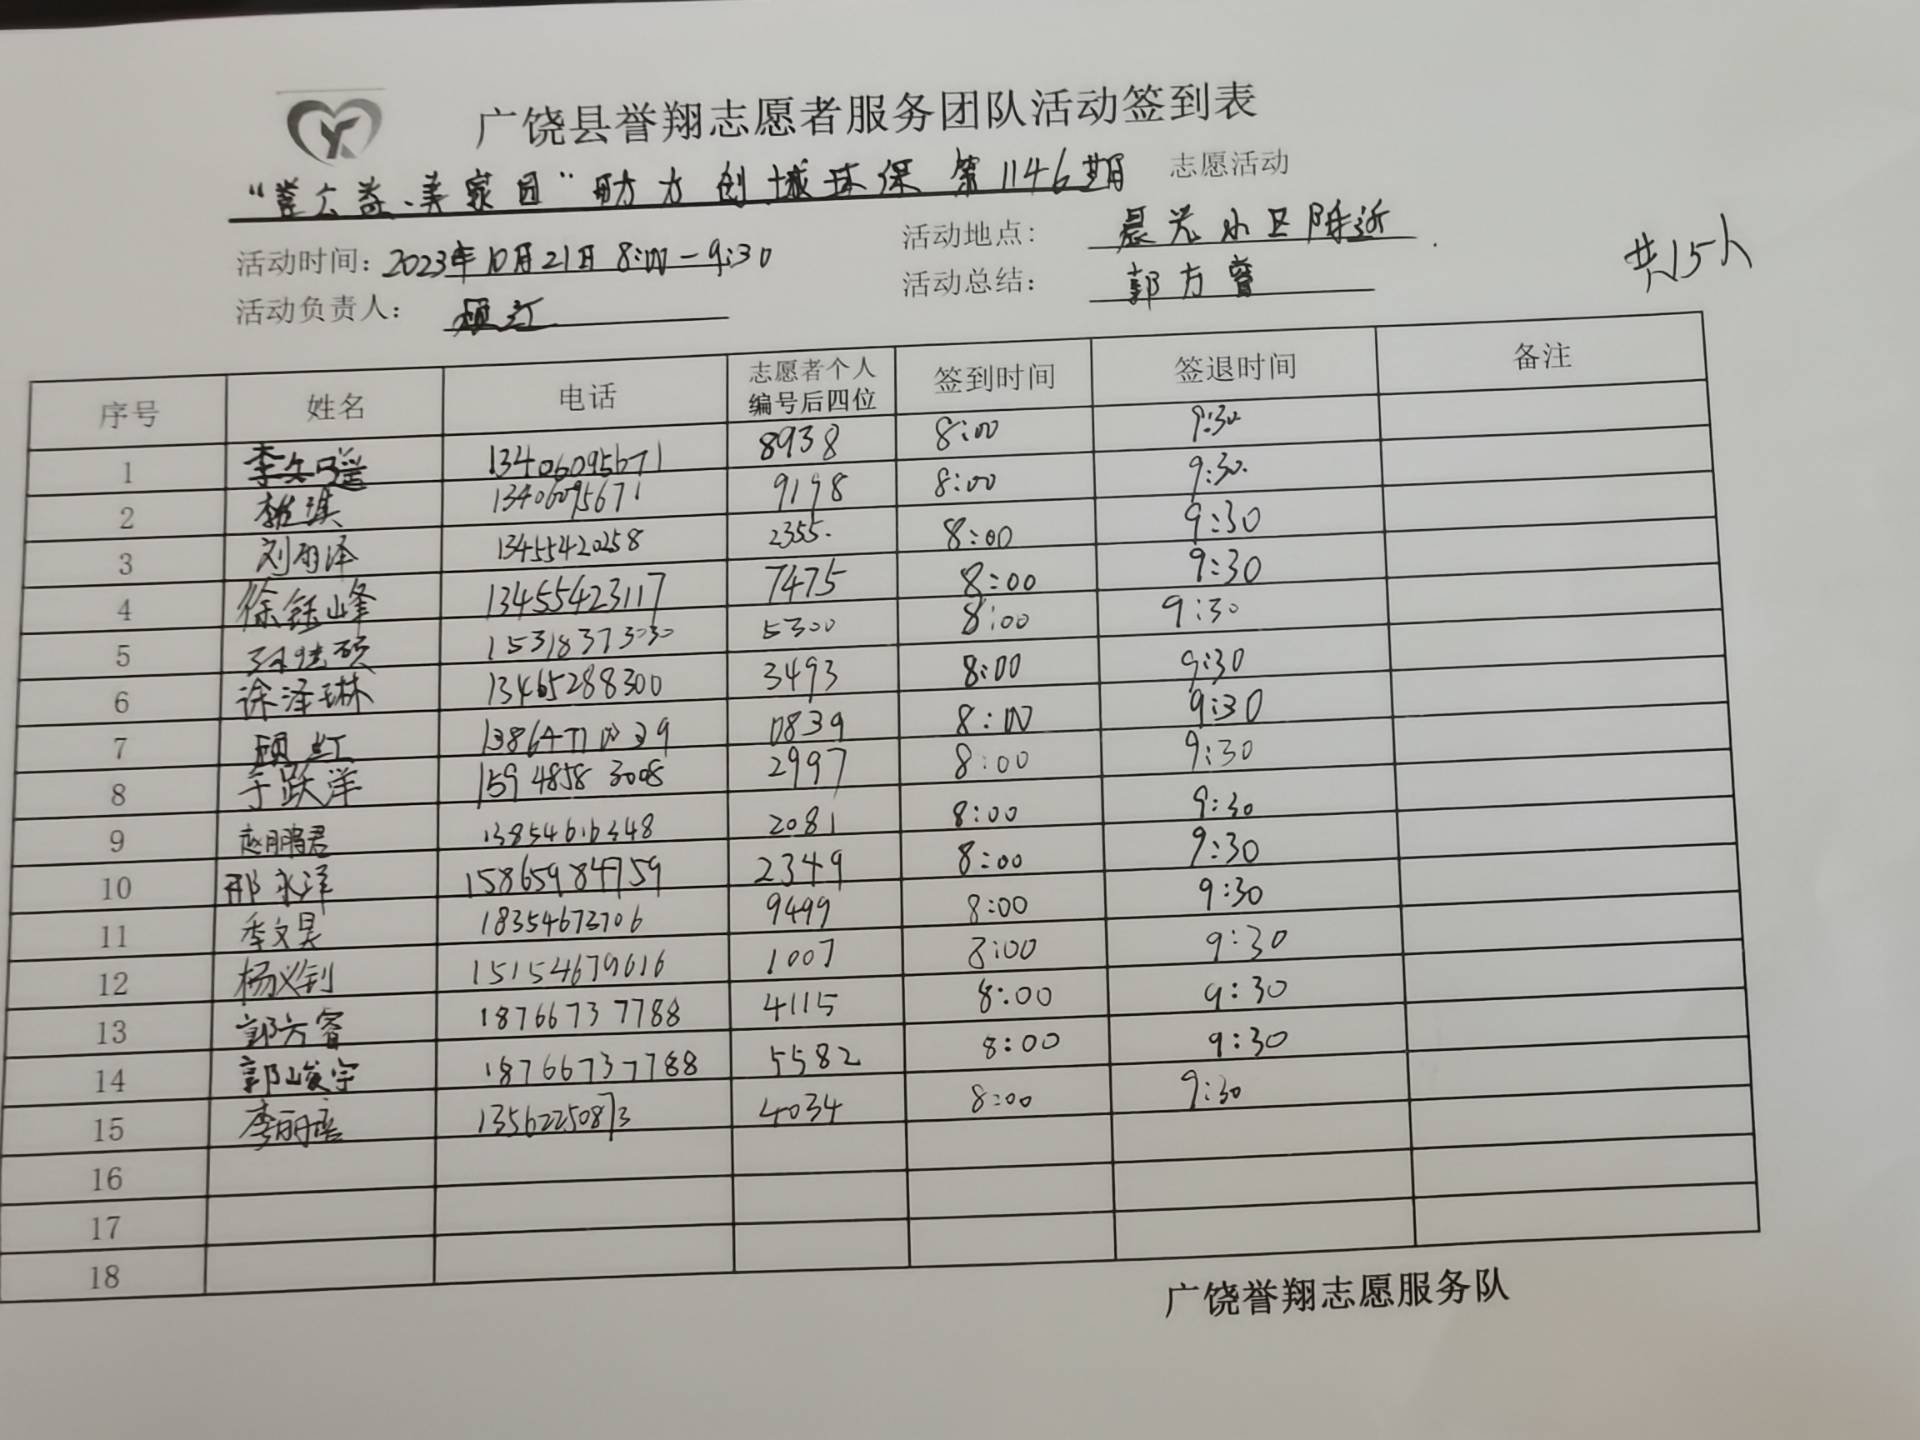 广饶县誉翔志愿者服务团队活动签到表
公益·美家园"助力创城环保 第1146期 志愿活动
活动时间: 2023年10月21日 8:00-9:30 活动地点: 晨光小区附近
共15人
活动负责人: 顾红 活动总结: 郭方睿
序号 姓名 电话 志愿者个人编号后四位 签到时间 签退时间 备注
1 李 瑶 13406095671 8938 8:00 9:30
2 琪 13406095671 9198 8:00 9:30.
3 刘雨泽 13455420258 2355. 8:00 9:30
4 徐钰峰 13455423117 7475 8:00 9:30
5 硕 15318373030 5300 8:00 9:30
6 徐泽琳 13465288300 3493 8:00 9:30
7 顾红 13864710039 0839 8:00 9:30
8 于跃洋 159 4858 3008 2997 8:00 9:30
9 赵鹏君 2081 8:00 9:30
10 邢永洋 15865984759 2349 8:00 9:30
11 李文昊 18354673706 9499 8:00 9:30
12 杨义钊 15154679616 1007 8:00 9:30
13 郭方睿 18766737788 4115 8:00 9:30
14 郭峻宇 18766737788 5582 8:00 9:30
15 李丽 13562250873 4034 8:00 9:30
16
17
18
广饶誉翔志愿服务队